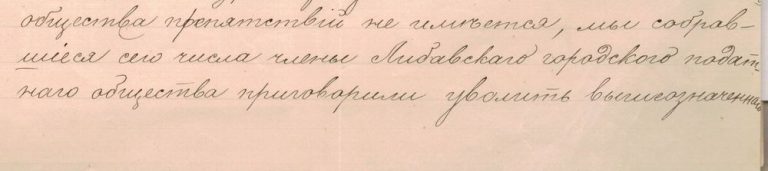 общества препятствій не имѣется, мы собрав-
шіеся сего числа члены Либавскаго городского подат-
наго общества приговорили уволить вышеозначеннаго